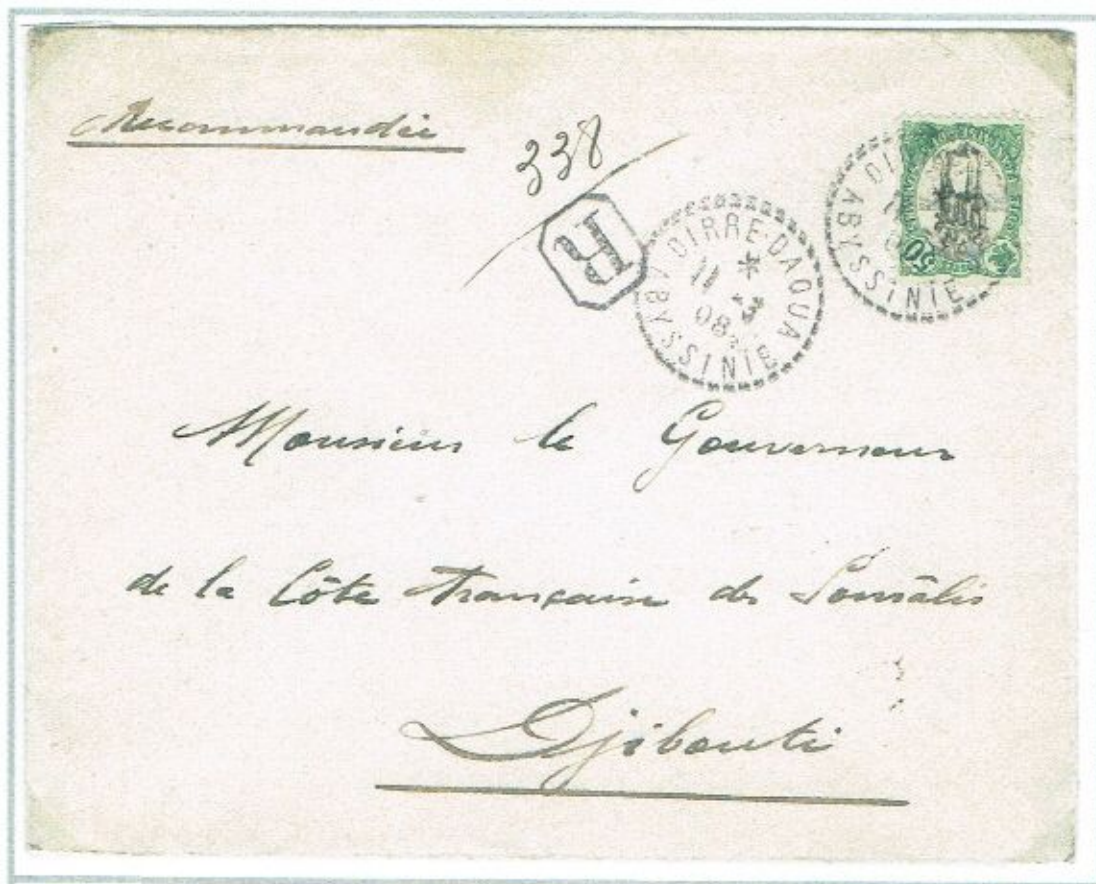 Recommandée
338
R
DIRRE-DAOUA
11 -3
08
ABYSSINIE
DI
ABYSSINIE
50
Monsieur le Gouverneur
de la Côte Française des Somâlis
Djibouti